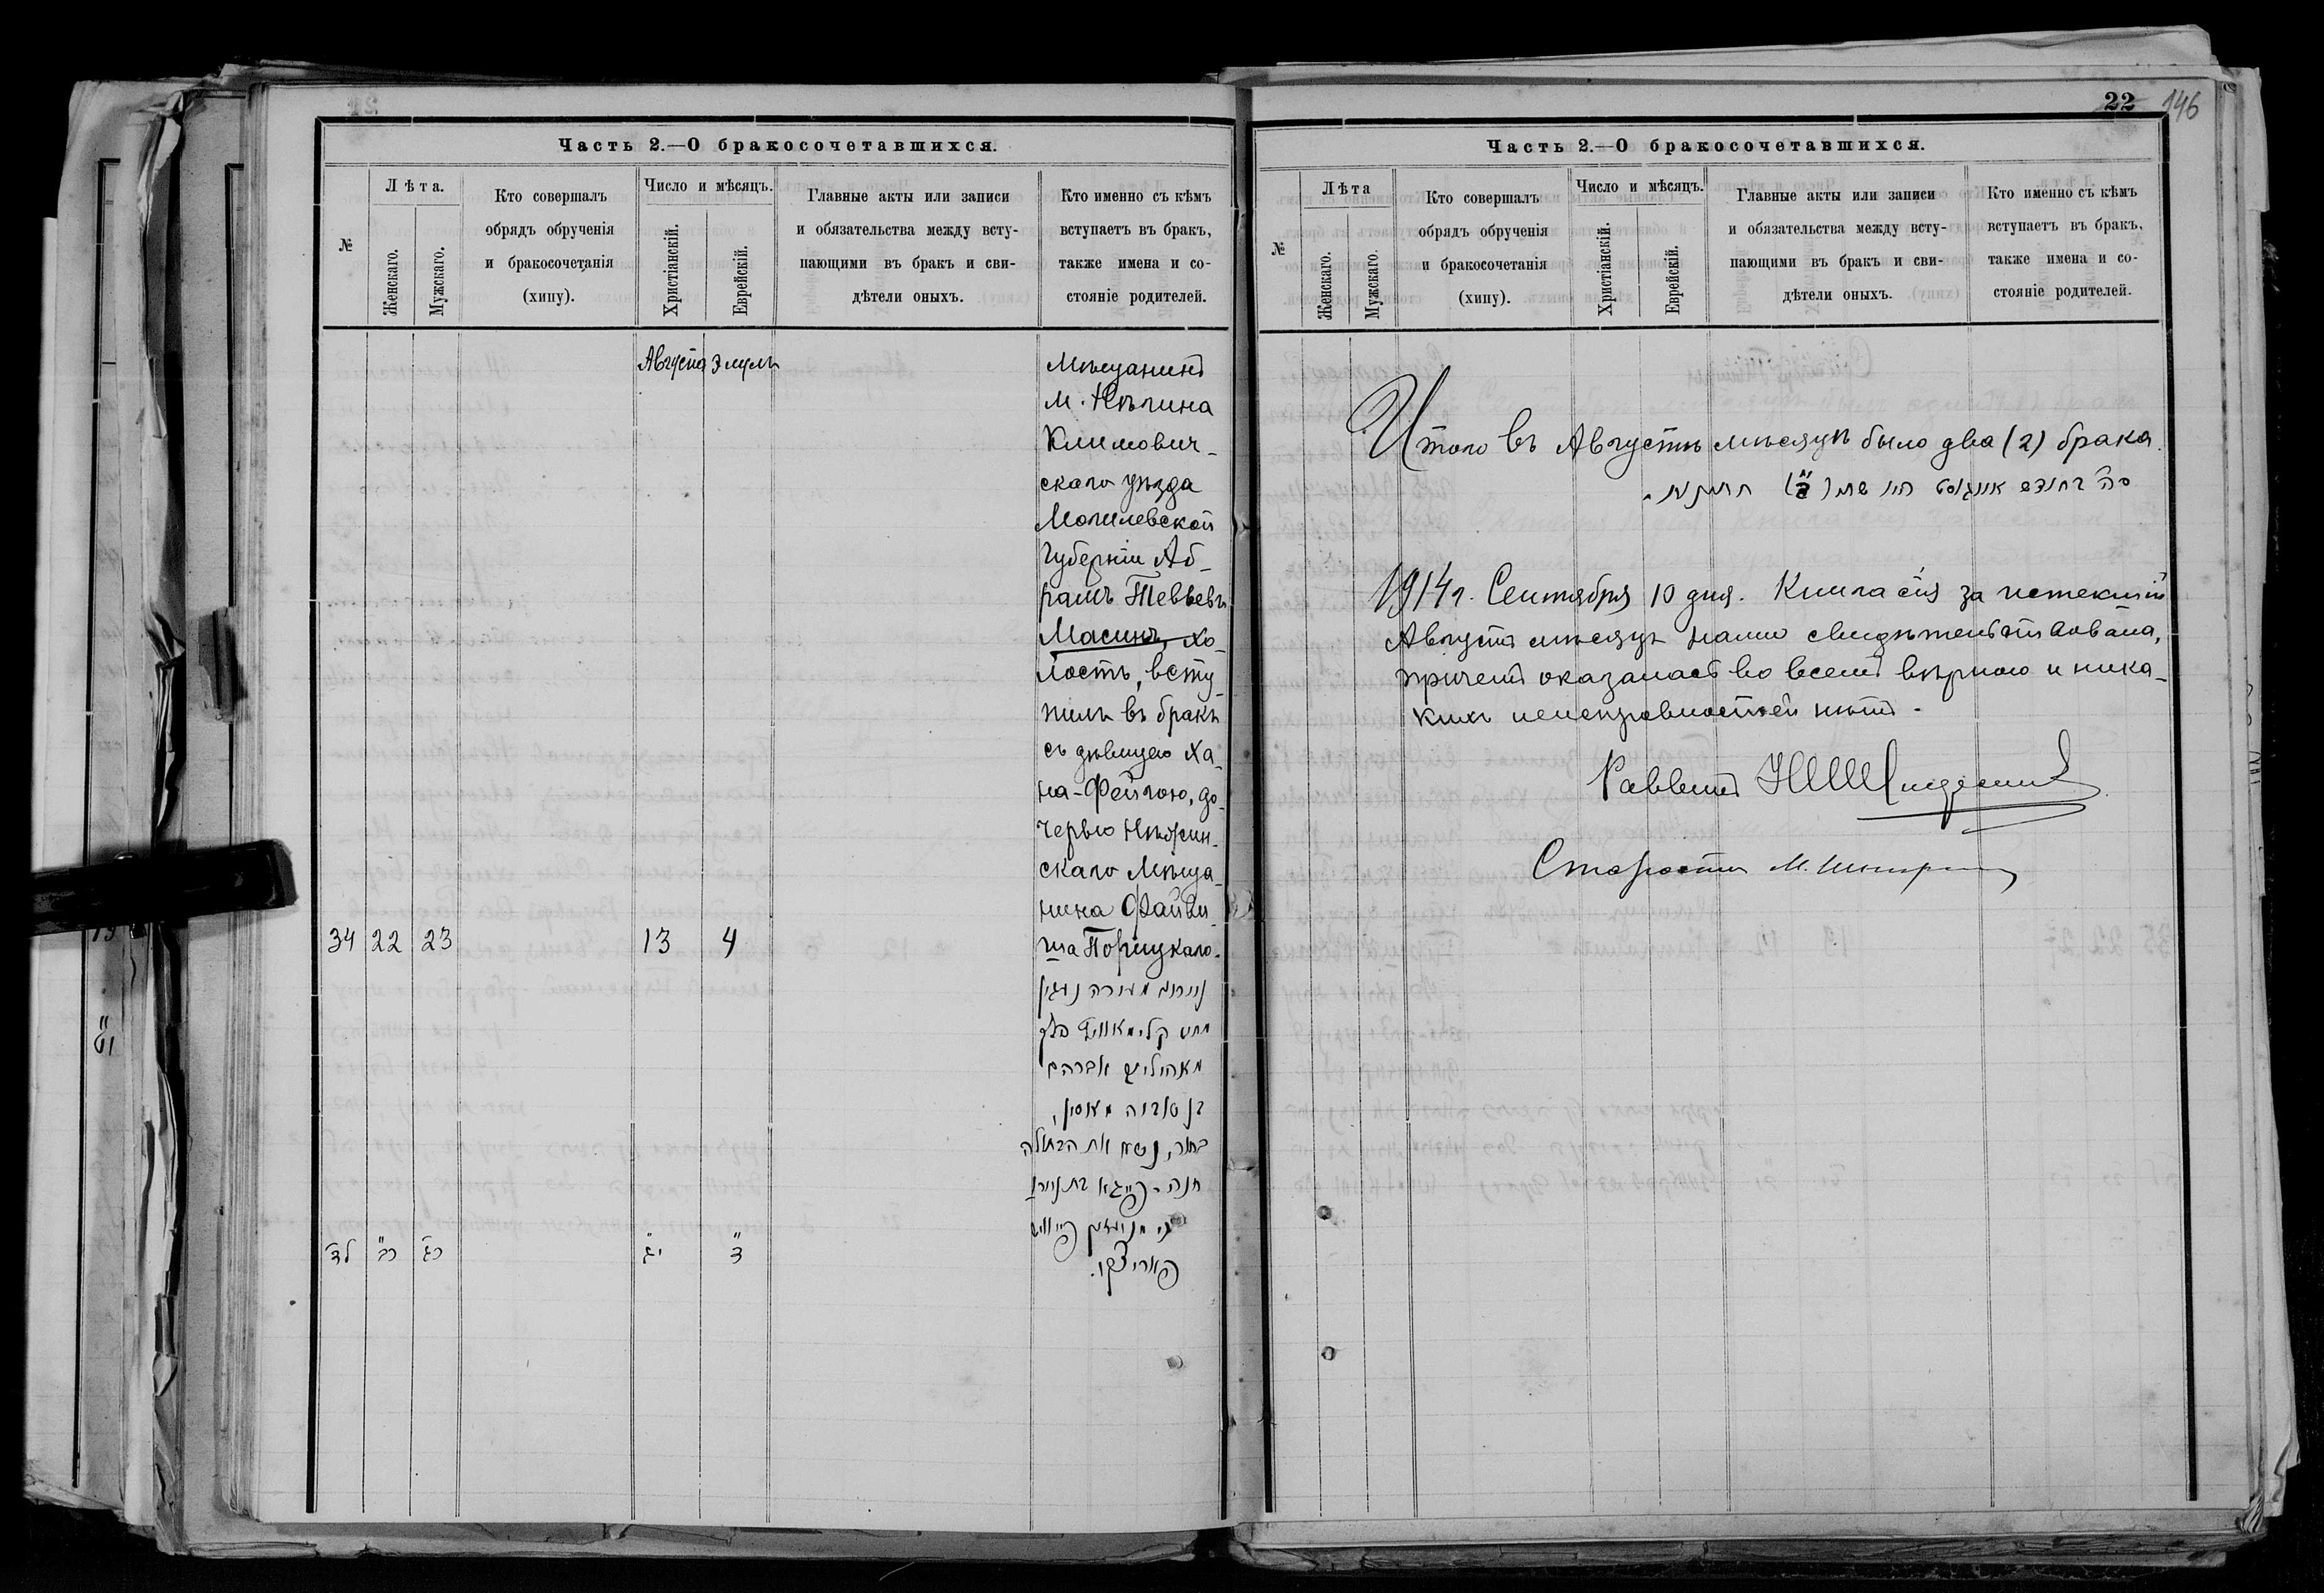 Часть 2.—О бракосочетавшихся.
№
Лѣта.
Женскаго.
Мужскаго.
Кто совершалъ
обрядъ обрученія
и бракосочетанія
(хипу).
Число и мѣсяцъ.
Христіанскій.
Еврейскій.
Главные акты или записи
и обязательства между всту-
пающими въ бракъ и сви-
дѣтели оныхъ.
Кто именно съ кѣмъ
вступаетъ въ бракъ,
также имена и со-
стояніе родителей.
Августа Элулъ
Мѣщанинъ
м.
Климович-
скаго уѣзда
Могилевской
губерніи Аб-
рамъ Тевьевъ
Масинъ, хо-
лостъ, всту-
пилъ въ бракъ
съ дѣвицею Ха-
на-Фейгою, до-
черью Нѣжин-
скаго Мѣща-
нина Файви-
ша Порицкаго.
34 22 23 13 4
מאהיליוו אברהם
בן טוביה מאסין,
בחור, נשא את הבתולה
חנה-פייגא בת
פאריצקי.
לד כב כג יג ד
22 146
Часть 2.—О бракосочетавшихся.
№
Лѣта
Женскаго.
Мужскаго.
Кто совершалъ
обрядъ обрученія
и бракосочетанія
(хипу).
Число и мѣсяцъ.
Христіанскій.
Еврейскій.
Главные акты или записи
и обязательства между всту-
пающими въ бракъ и сви-
дѣтели оныхъ.
Кто именно съ кѣмъ
вступаетъ въ бракъ,
также имена и со-
стояніе родителей.
Итого въ Августѣ мѣсяцѣ было два (2) брака.
סה בחודש אווגוסט היו שתי (ב) חתונות.
1914 г. Сентября 10 дня. Книга сія за истекшій
Августъ мѣсяцъ нами свидѣтельствована,
причемъ оказалась во всемъ вѣрною и ника-
кихъ неисправностей нѣтъ.
Раввинъ
Староста М.